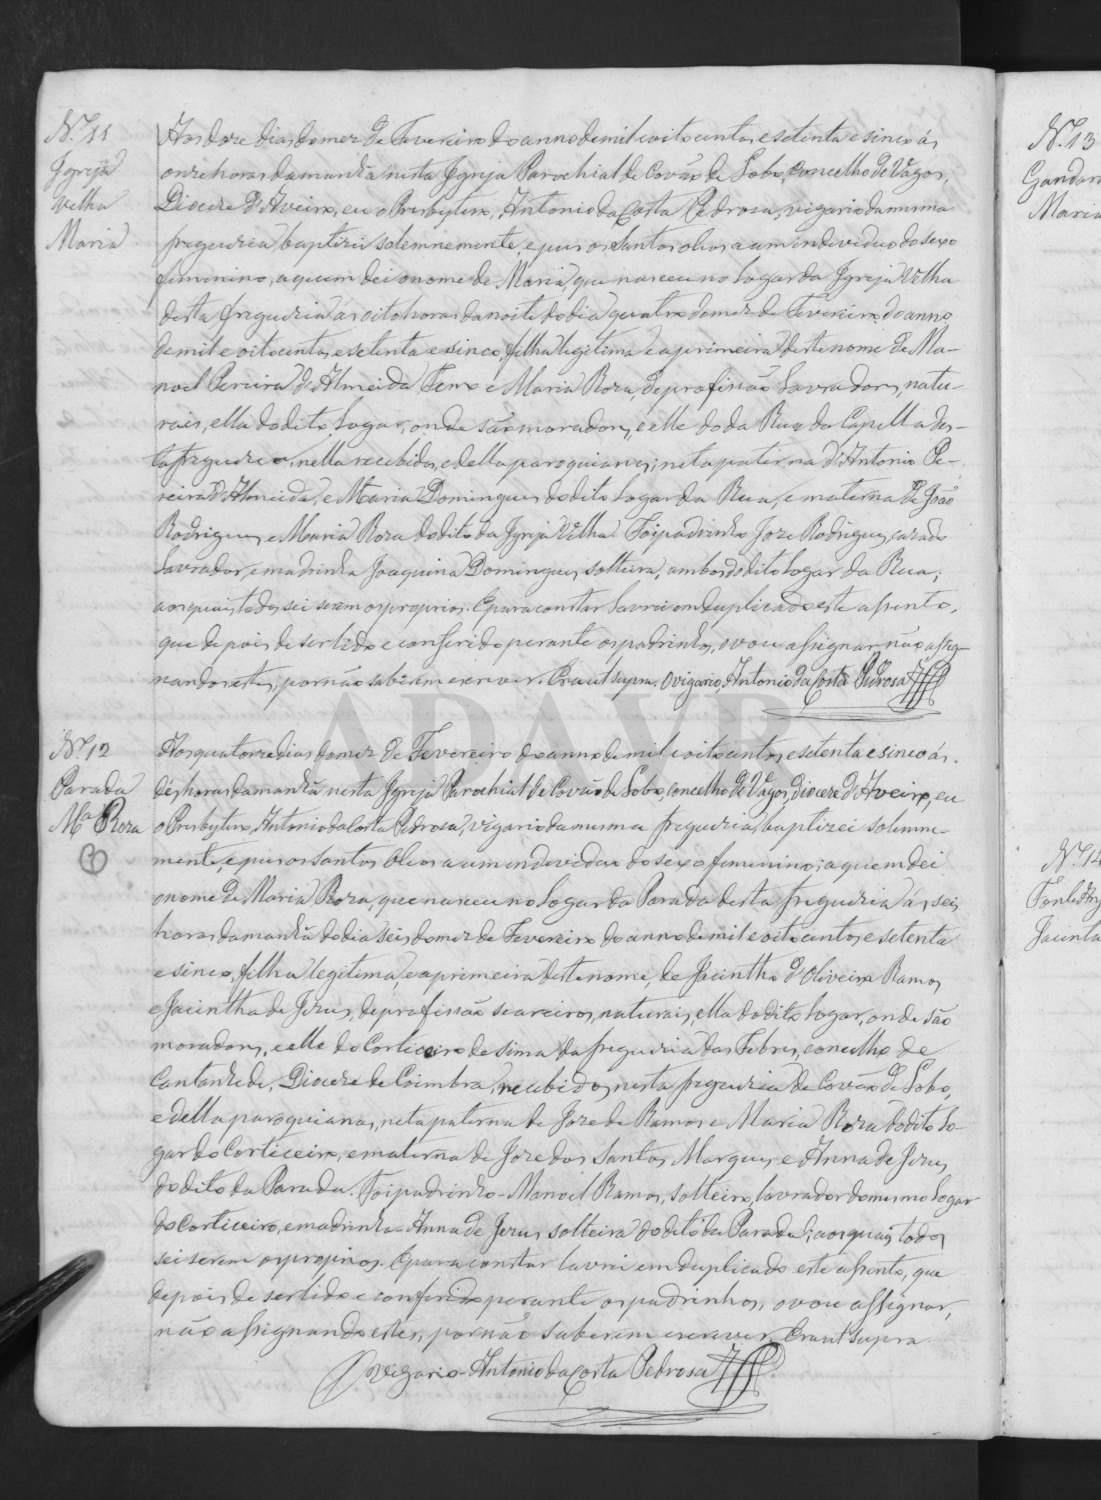 N.º 11
Igreja
Velha
Maria
Aos doze dias do mez de Fevereiro do anno de mil oito centos e setenta e sinco ás
onze horas da manhã nesta Igreja Parochial de Covão de Lobo, concelho de Vagos,
Diocere d'Aveiro, eu o Presbytero, Antonio da Costa Pedrosa, vigario da mesma
freguezia baptizei solemnemente, e pus os Santos olios a um endeviduo do sexo
femenino, a quem dei o nome de Maria, que nasceu no Logar da Igreja Velha
desta freguezia ás oito horas da noite do dia quatro do mez de Fevereiro do anno
de mil e oito centos e setenta e sinco, filha legitima e a primeira deste nome de Ma-
noel Pereira d'Almeida e Maria Roza, de profissão Lavradores, natu-
raes, ella do dito Logar, onde são moradores, e elle do da Rua da Capella des-
ta freguezia, nella recebidos, e della paroquianos; neta paterna d'Antonio Pe-
reira d'Almeida, e Maria Domingues do dito Logar da Rua, e materna de João
Rodrigues e Maria Roza do dito da Igreja Velha. Foi padrinho Joze Rodrigues, cazado
Lavrador, e madrinha Joaquina Domingues, solteira, ambos do dito Logar da Rua;
aos quaes todos sei serem os proprios. E para constar lavrei em duplicado este assento,
que depois de ser lido e conferido perante os padrinhos, o vou assignar, não assig-
nando estes, por não saberem escrever. Era ut supra. O vigario, Antonio da Costa Pedrosa
N.º 12
Parada
M.ª Roza
Aos quatorze dias do mez de Fevereiro do anno de mil e oito centos e setenta e sinco ás
dés horas da manhã nesta Igreja Parochial de Covão de Lobo, concelho de Vagos, diocere d'Aveiro, eu
o Presbytero, Antonio da Costa Pedrosa, vigario da mesma freguezia, baptizei solemne-
mente, e pus os santos Olios a um endeviduo do sexo femenino; a quem dei
o nome de Maria Roza, que nasceu no Logar da Parada desta freguezia ás seis
horas da manhã do dia seis do mez de Fevereiro do anno de mil e oito centos e setenta
e sinco, filha legitima, e a primeira deste nome, de Jacintho d'Oliveira Ramos
e Jacintha de Jezus, de profissão seareiros, naturaes, ella do dito Logar, onde são
moradores, e elle do Corticeiro de sima da freguezia das Febres, concelho de
Cantanhede, Diocere de Coimbra, recebidos nesta freguezia de Covão de Lobo,
e della paroquianos, neta paterna de Joze de Ramos e Maria Roza do dito Lo-
gar do Corticeiro, e materna de Joze dos Santos Marques e Anna de Jezus
do dito da Parada. Foi padrinho - Manoel Ramos, solteiro, lavrador do mesmo Logar
do Corticeiro, e madrinha - Anna de Jezus solteira do dito da Parada; aos quaes todos
sei serem os proprios. E para constar lavrei em duplicado este assento, que
depois de ser lido e conferido perante os padrinhos, o vou assignar,
não assignando estes, por não saberem escrever. Era ut supra
O vigario - Antonio da Costa Pedrosa
ADAVR
N.º 13
Maria
N.º 14
Jacinta